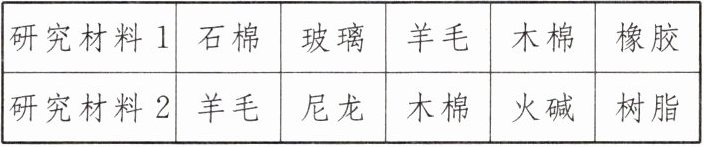 研究材料1 石棉 玻璃 羊毛 木棉 橡胶
研究材料2 羊毛 尼龙 木棉 火碱 树脂